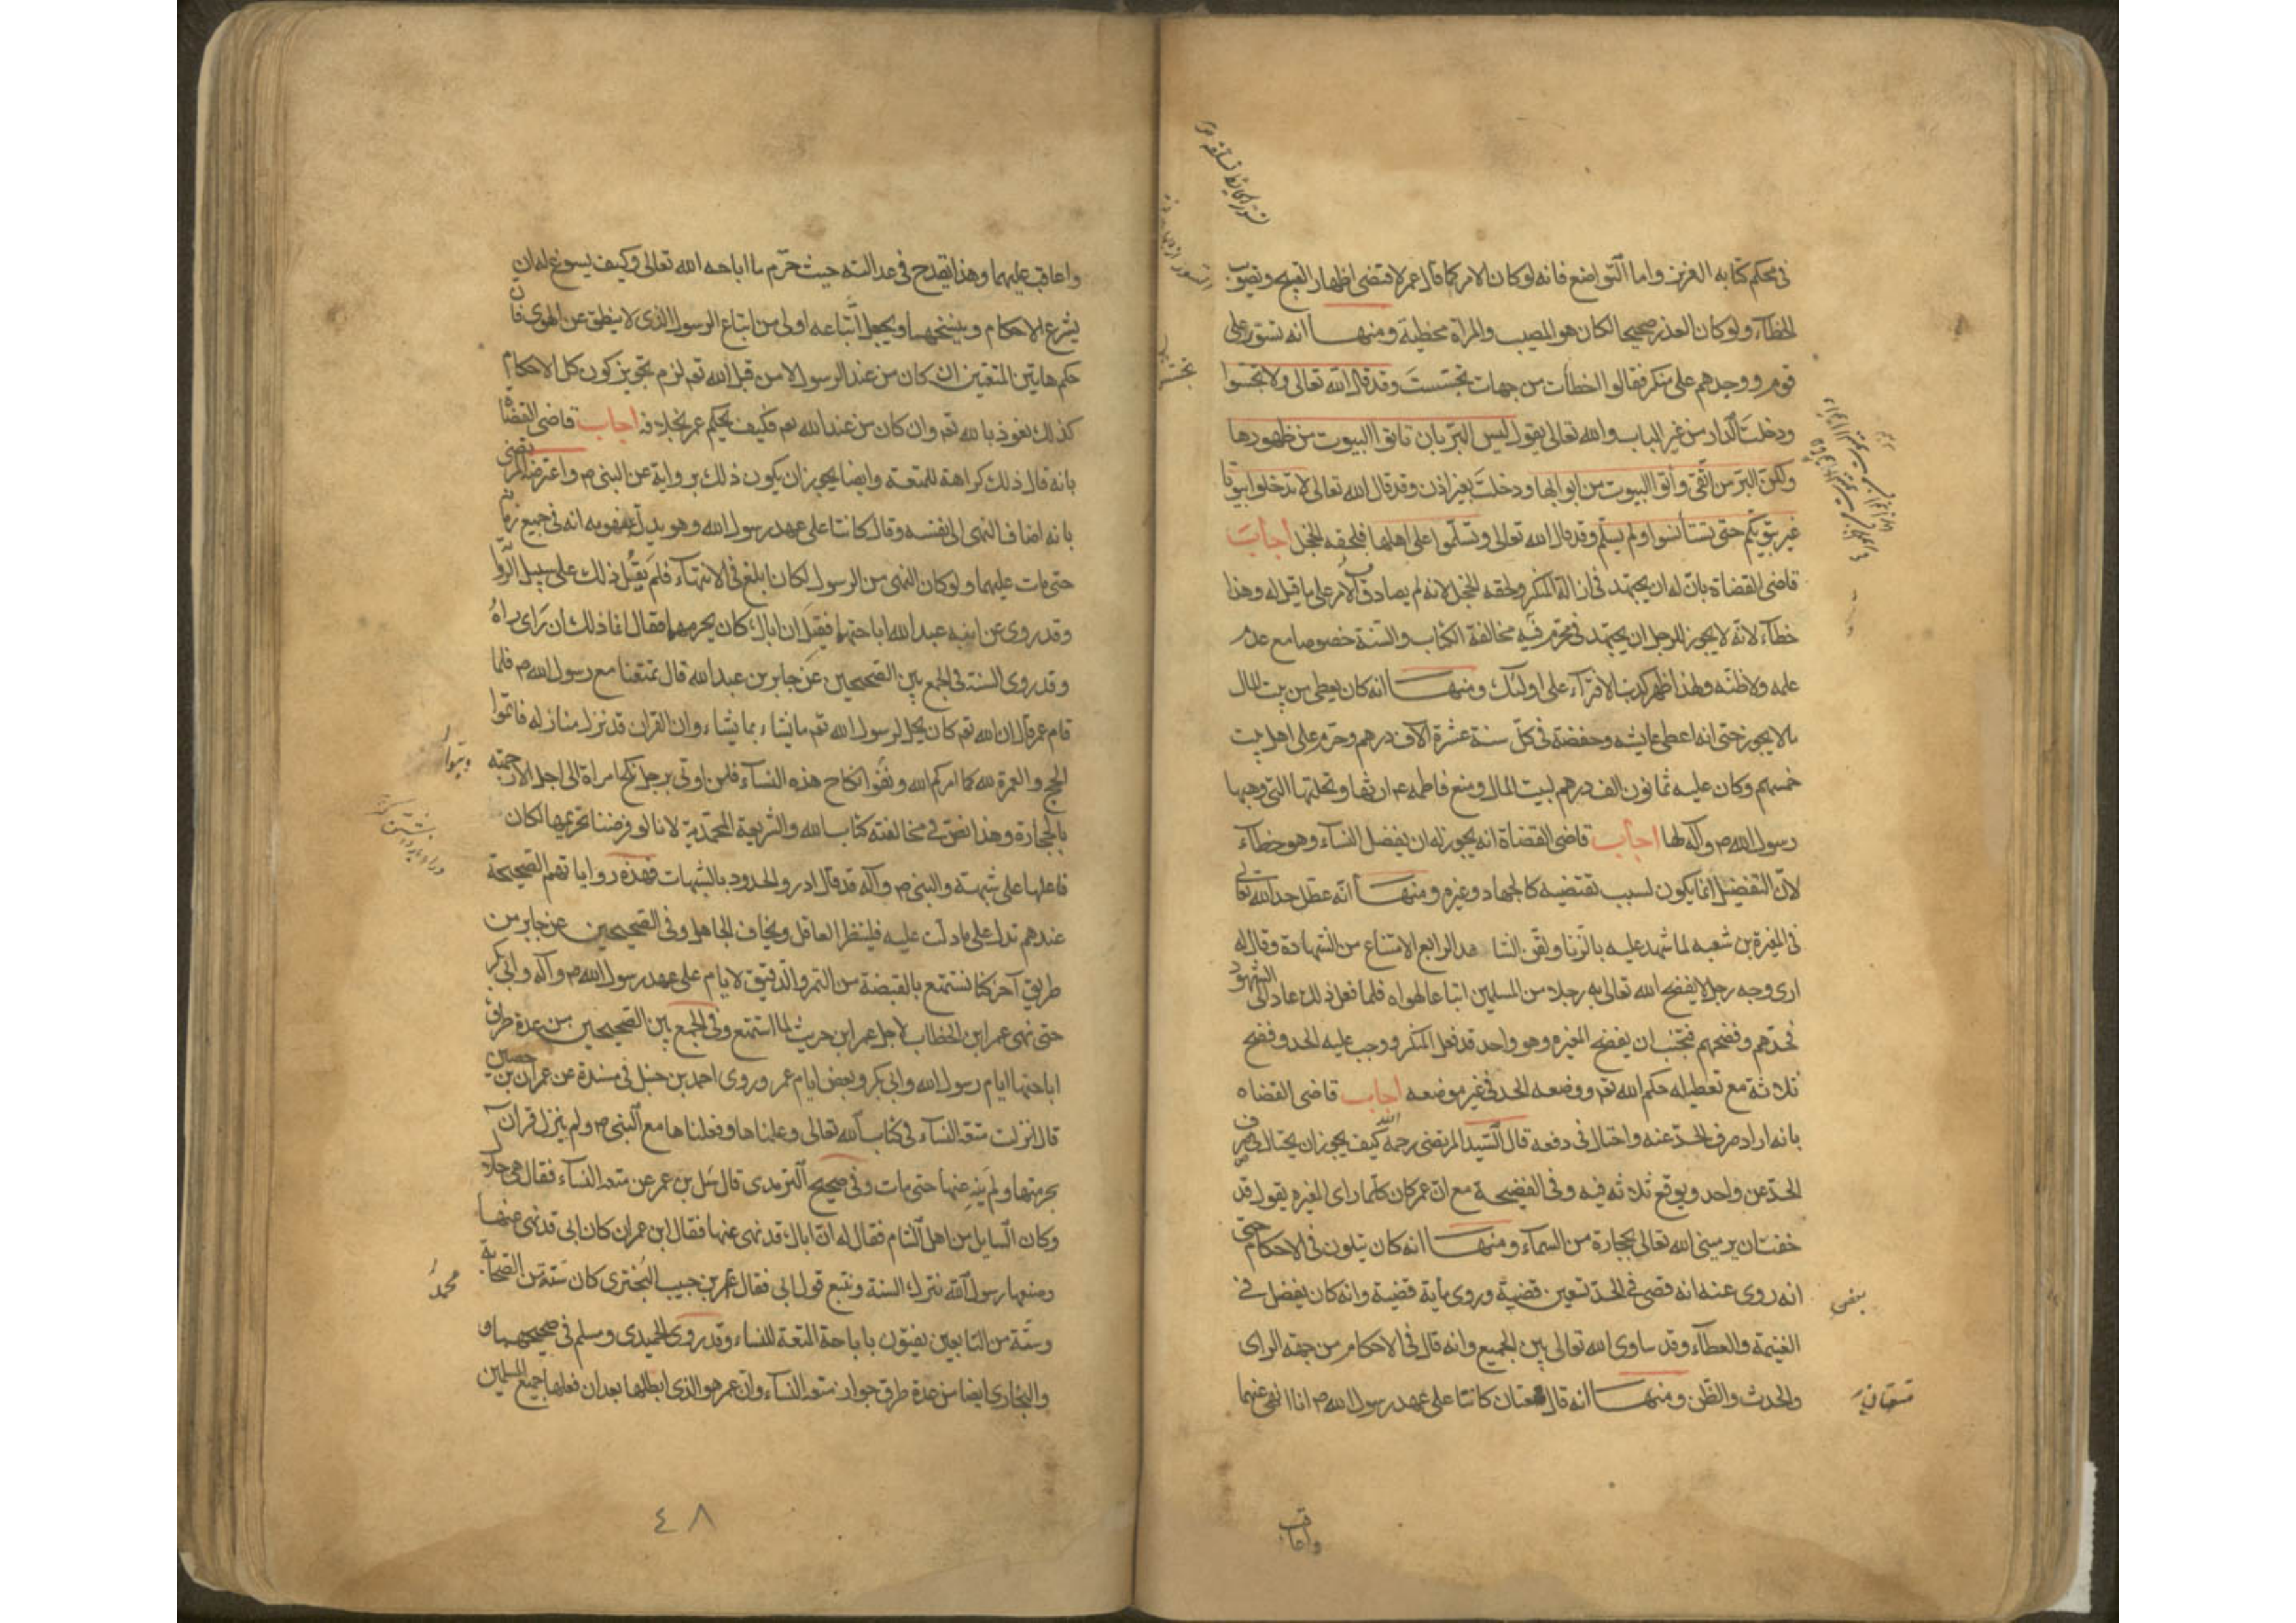 فى محكم كتابه العزيز واما التواضع فانه لو كان الامر كما قال عمر لاقتضى اظهار القبيح وتصويب
الخطآء ولو كان العذر صحيحا لكان هو المصيب والمراة مخطية ومنها انه تستور على
قوم ووجدهم على منكر فقالوا اخطأت من جهات تجسست وقد قال الله تعالى ولا تجسسوا
ودخلت الدار من غير الباب والله تعالى يقول ليس البر بان تاتوا البيوت من ظهورها
ولكن البر من اتقى وأتوا البيوت من ابوابها ودخلت بغير اذن وقد قال الله تعالى لا تدخلوا بيوتا
غير بيوتكم حتى تستأنسوا ولم يسلم وقد قال الله تعالى وتسلموا على اهلها فلحقه الخجل اجاب
قاضى القضاة بان له ان يجتهد فى ازالة المنكر ولحقه الخجل لانه لم يصادف الامر على ما قيل له وهذا
خطآء لانه لا يجوز للرجل ان يجتهد فى محرم فيه مخالفة الكتاب والسنة خصوصا مع عدم
علمه ولا ظنه ولهذا ظهر كذب الافترآء على اولئك ومنها انه كان يعطى من بيت المال
ما لا يجوز حتى انه اعطى عايشه وحفصة فى كل سنة عشرة آلاف درهم وحرم على اهل بيت
خمسهم وكان عليه ثمانون الف درهم لبيت المال ومنع فاطمه ع ارثها ونحلتها التى وهبها
رسول الله ص وآله لها اجاب قاضى القضاة انه يجوز له ان يفضل النسآء وهو خطآء
لان التفضيل انما يكون لسبب تقتضيه كالجهاد وغيره ومنها انه عطل حد الله تعالى
فى المغيرة بن شعبه لما شهد عليه بالزنا ولقن الشاهد الرابع الامتناع من الشهادة وقال له
ارى وجه رجل لا يفضح الله تعالى به رجلا من المسلمين اتباعا لهواه فلما فعل ذلك عاد الى الشهود
فحدهم وفضحهم فتجنب ان يفضح المغيره وهو واحد قد فعل المنكر ووجب عليه الحد وفضح
ثلاثة مع تعطيله حكم الله تعم ووضعه الحد فى غير موضعه اجاب قاضى القضاه
بانه اراد صرف الحد عنه واحتال فى دفعه قال السيد المرتضى رحمه الله كيف يجوز ان يحتال فى صرف
الحد عن واحد ويوقع ثلاثه فيه وفى الفضيحة مع ان عمر كان كلما راى المغيره يقول قد
خفت ان يرمينى الله تعالى بحجارة من السمآء ومنها انه كان يتلون فى الاحكام حتى
انه روى عنه انه قضى فى الحد تسعين قضية وروى ماية قضية وانه كان يفضل فى
الغنيمة والعطآء وقد ساوى الله تعالى بين الجميع وانه قال فى الاحكام من جهة الراى
والحدث والظن ومنها انه قال متعتان كانتا على عهد رسول الله ص انا انهى عنهما
واعاقب
واعاقب عليهما وهذا يقدح فى عدالته حيث حرم ما اباحه الله تعالى وكيف يسوغ له ان
يشرع الاحكام وينسخها ويجعل اتباعه اولى من اتباع الرسول الذى لا ينطق عن الهوى فان
حكم هاتين المتعتين ان كان من عند الرسول لا من قبل الله تعم لزم تجويز كون كل الاحكام
كذلك نعوذ بالله تعم وان كان من عند الله تعم فكيف يحكم عمر بخلافه اجاب قاضى القضاة
بانه قال ذلك كراهة للمتعة وايضا يجوز ان يكون ذلك برواية عن النبى ص واعترضه المرتضى
بانه اضاف النهى الى نفسه وقال كانتا على عهد رسول الله وهو يدل بمفهومه انه فى جميع زمانه
حتى مات عليهما ولو كان النهى من الرسول لكان ابلغ فى الانتهآء فلم يقل ذلك على سبيل الروا
وقد روى عن ابنه عبد الله اباحتها فقيل ان اباك كان يحرمها فقال انما ذلك رأى رآه
وقد روى السنة فى الجمع بين الصحيحين عن جابر بن عبد الله قال تمتعنا مع رسول الله ص فلما
قام عمر قال ان الله تعم كان يحل لرسول الله تعم ما يشاء بما يشاء وان القران قد نزل منازله فاتموا
الحج والعمرة لله كما امركم الله وبتوا نكاح هذه النسآء فلن اوتى برجل نكح امراة الى اجل الا رجمته
بالحجارة وهذا نص فى مخالفته كتاب الله والشريعة المحمدية لانا لو فرضنا تحريمها لكان
فاعلها على شبهة والنبى ص وآله قد قال ادرؤ الحدود بالشبهات فهذه رواياتهم الصحيحة
عندهم تدل على ما دلت عليه فلينظر العاقل ويخاف الجاهل وفى الصحيحين عن جابر من
طريق آخر كنا نستمتع بالقبضة من التمر والدقيق لايام على عهد رسول الله ص وآله وابى بكر
حتى نهى عمر ابن الخطاب لاجل عمر ابن حريث لما استمتع وفى الجمع بين الصحيحين من عدة طرق
اباحتها ايام رسول الله وابى بكر وبعض ايام عمر وروى احمد بن حنبل فى مسنده عن عمران بن حصين
قال نزلت متعة النسآء فى كتاب الله تعالى وعلمناها وفعلناها مع النبى ص ولم ينزل قرآن
بحرمتها ولم ينه عنها حتى مات وفى صحيح الترمذى قال سئل بن عمر عن متعة النسآء فقال هى حلال
وكان السايل من اهل الشام فقال له ان اباك قد نهى عنها فقال ابن عمر ان كان ابى قد نهى عنها
وصنعها رسول الله نترك السنة ونتبع قول ابى فقال محمد بن حبيب البخترى كان ستة من الصحابة
وستة من التابعين يفتون باباحة المتعة للنساء وقد روى الحميدى ومسلم فى صحيحهما و
والبخارى ايضا من عدة طرق جواز متعة النسآء وان عمر هو الذى ابطلها بعد ان فعلها جميع المسلمين
محمد
٤٨